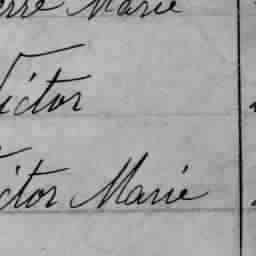 erre Marie
Victor
ictor Marie